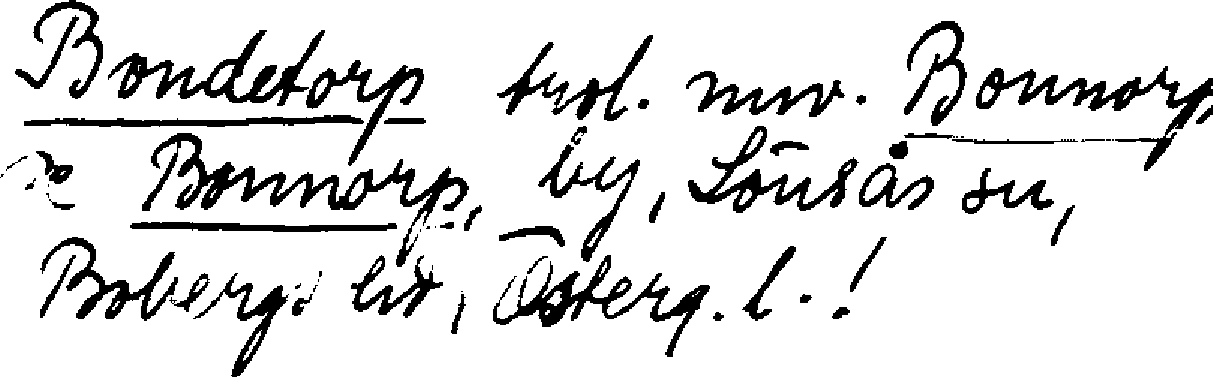 Bondetorp trol. nuv. Bonnorp
Bonnorp, by, Lönsås sn,
Bobergs hd, Österg. l. !